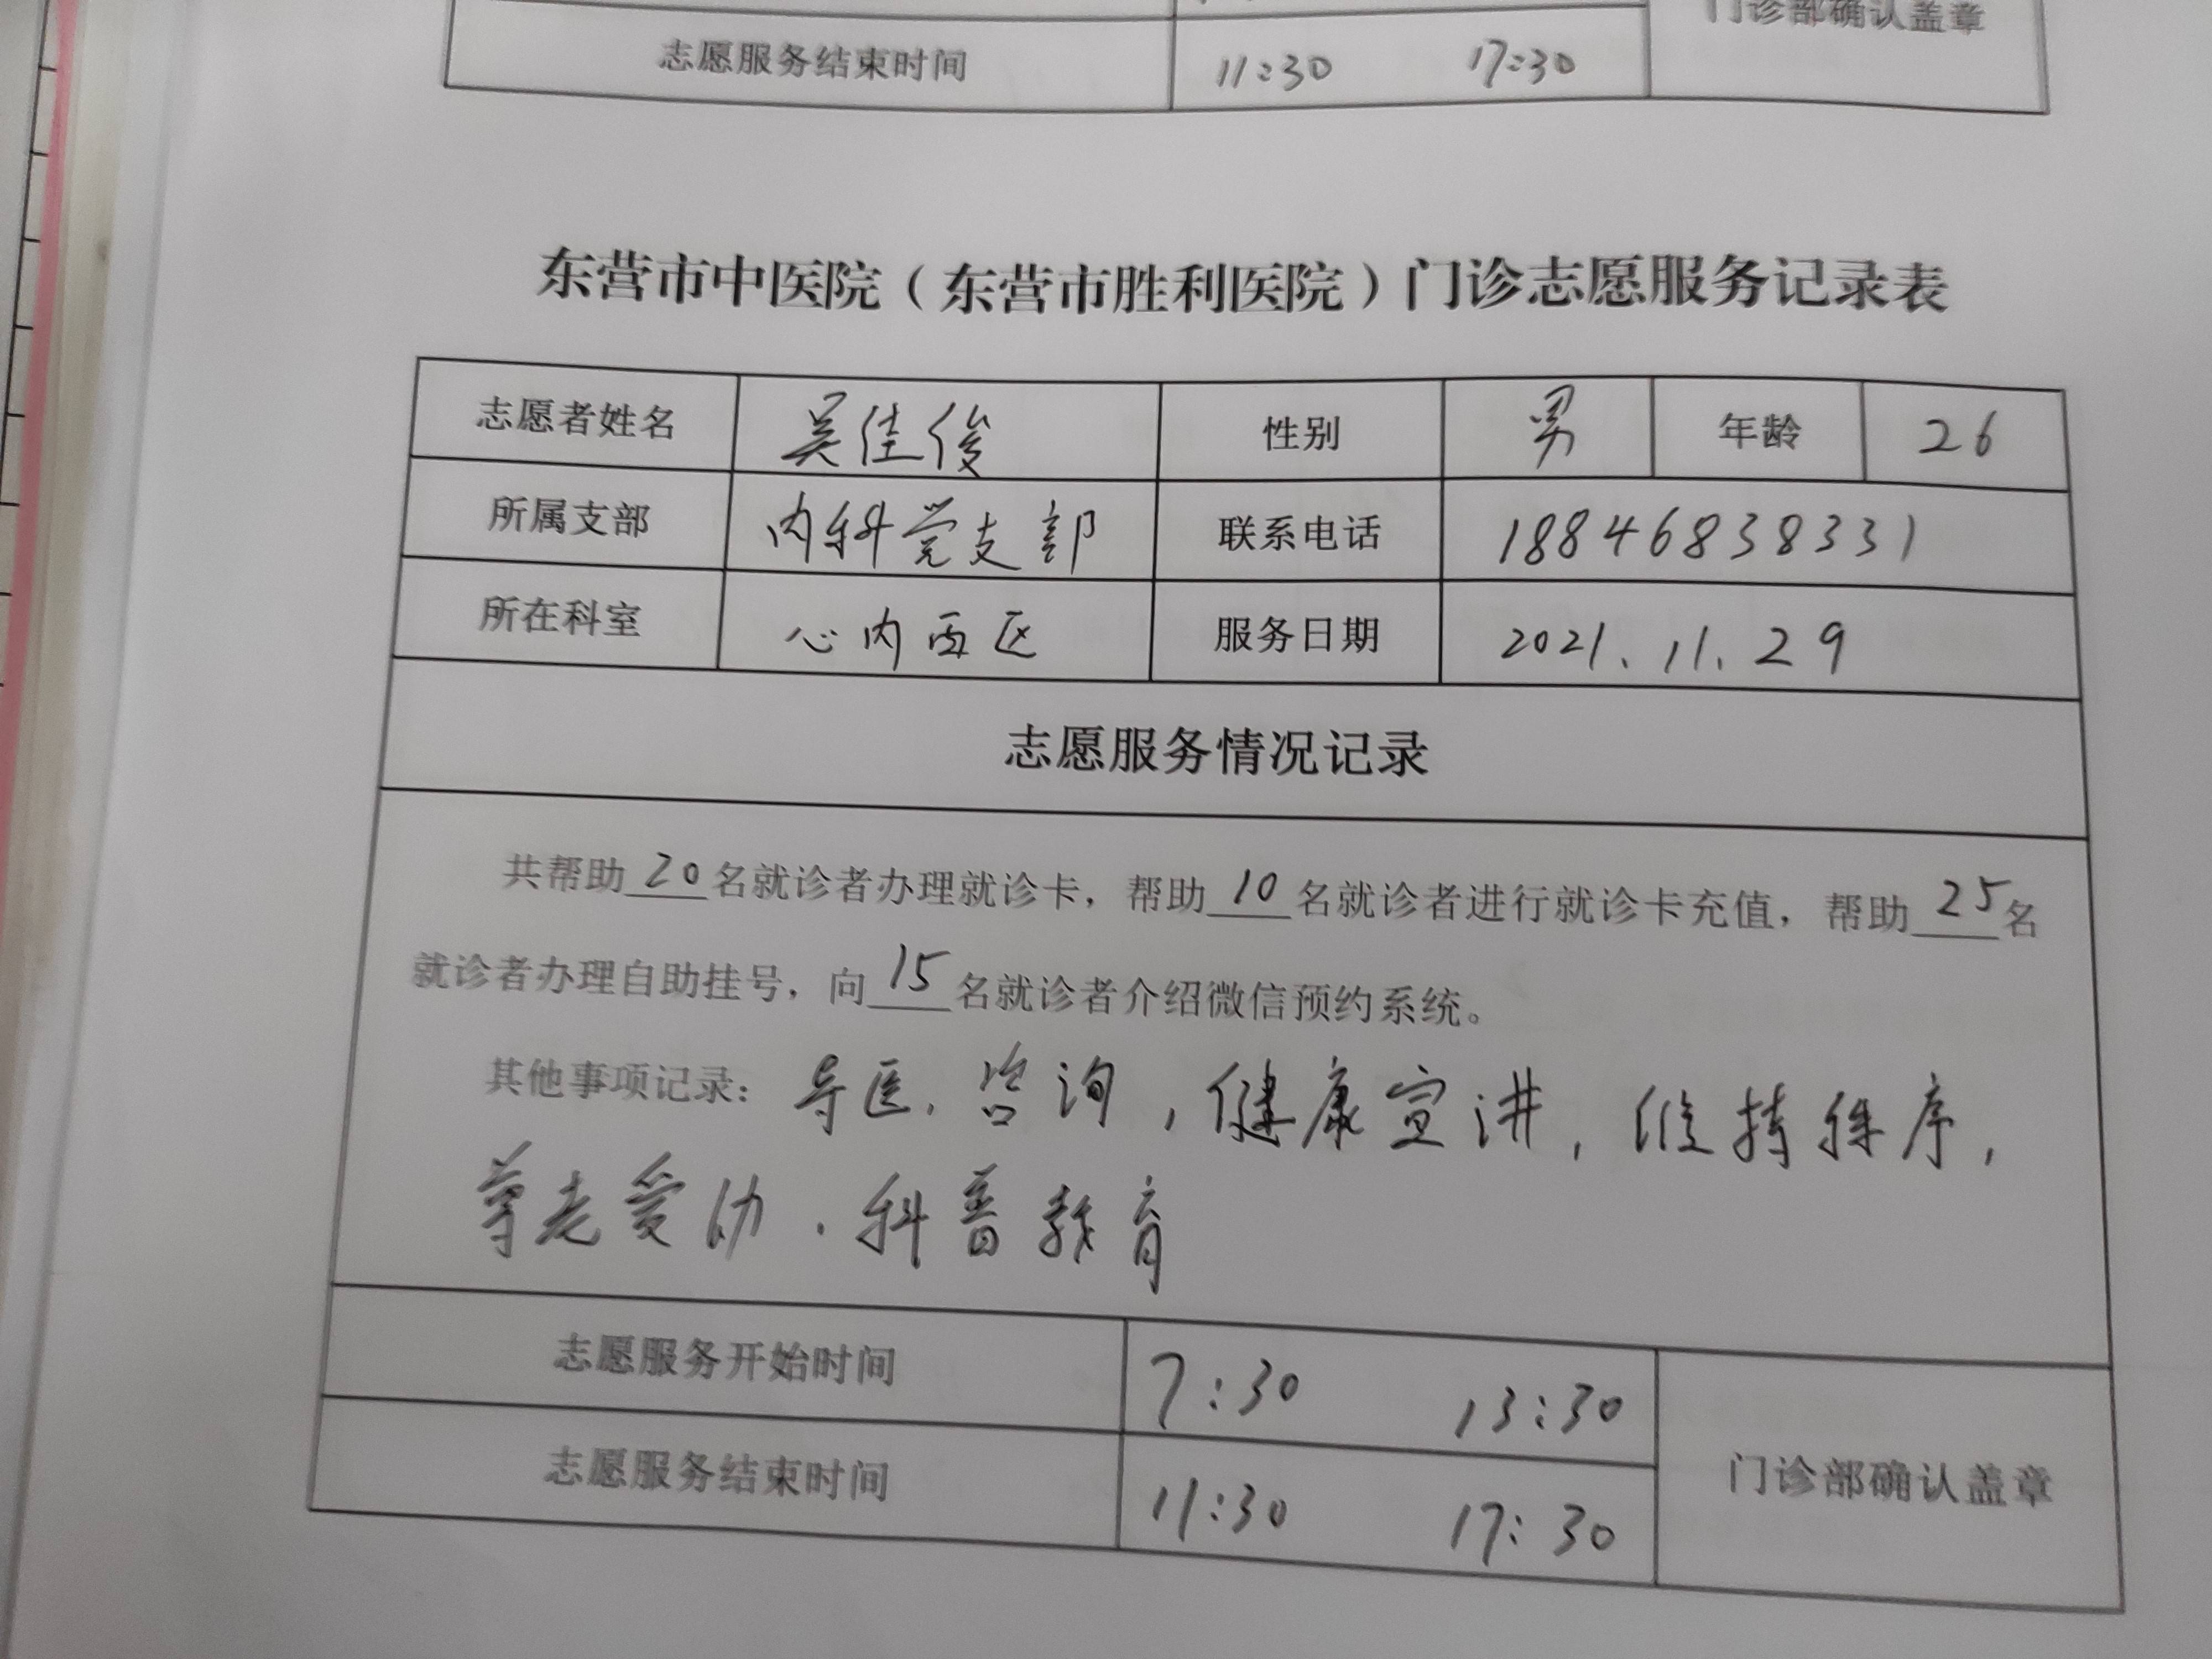 门诊部确认盖章
志愿服务结束时间 11:30 17:30
东营市中医院（东营市胜利医院）门诊志愿服务记录表
志愿者姓名 吴佳俊 性别 男 年龄 26
所属支部 内科党支部 联系电话 18846838331
所在科室 心内西区 服务日期 2021.11.29
志愿服务情况记录
共帮助20名就诊者办理就诊卡，帮助10名就诊者进行就诊卡充值，帮助25名
就诊者办理自助挂号，向15名就诊者介绍微信预约系统。
其他事项记录：导医、咨询，健康宣讲，维持秩序，
尊老爱幼、科普教育
志愿服务开始时间 7:30 13:30
志愿服务结束时间 11:30 17:30
门诊部确认盖章